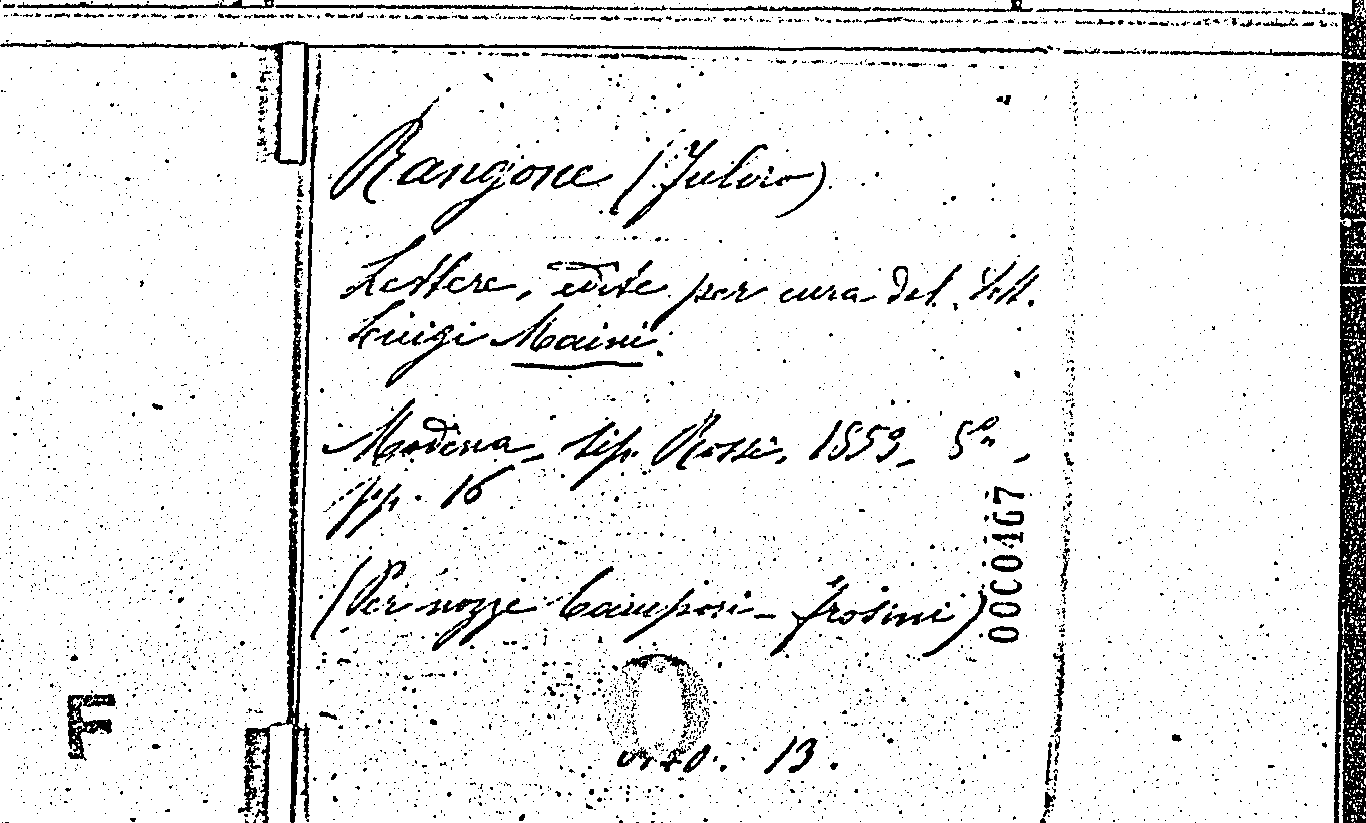 Rangone (Fulvio)
Lettere, edite per cura del Dott.
Luigi Maini.
Modena, tip. Rossi, 1859, 8°,
pp. 16
(Per nozze Campori - Frosini)
13.
F